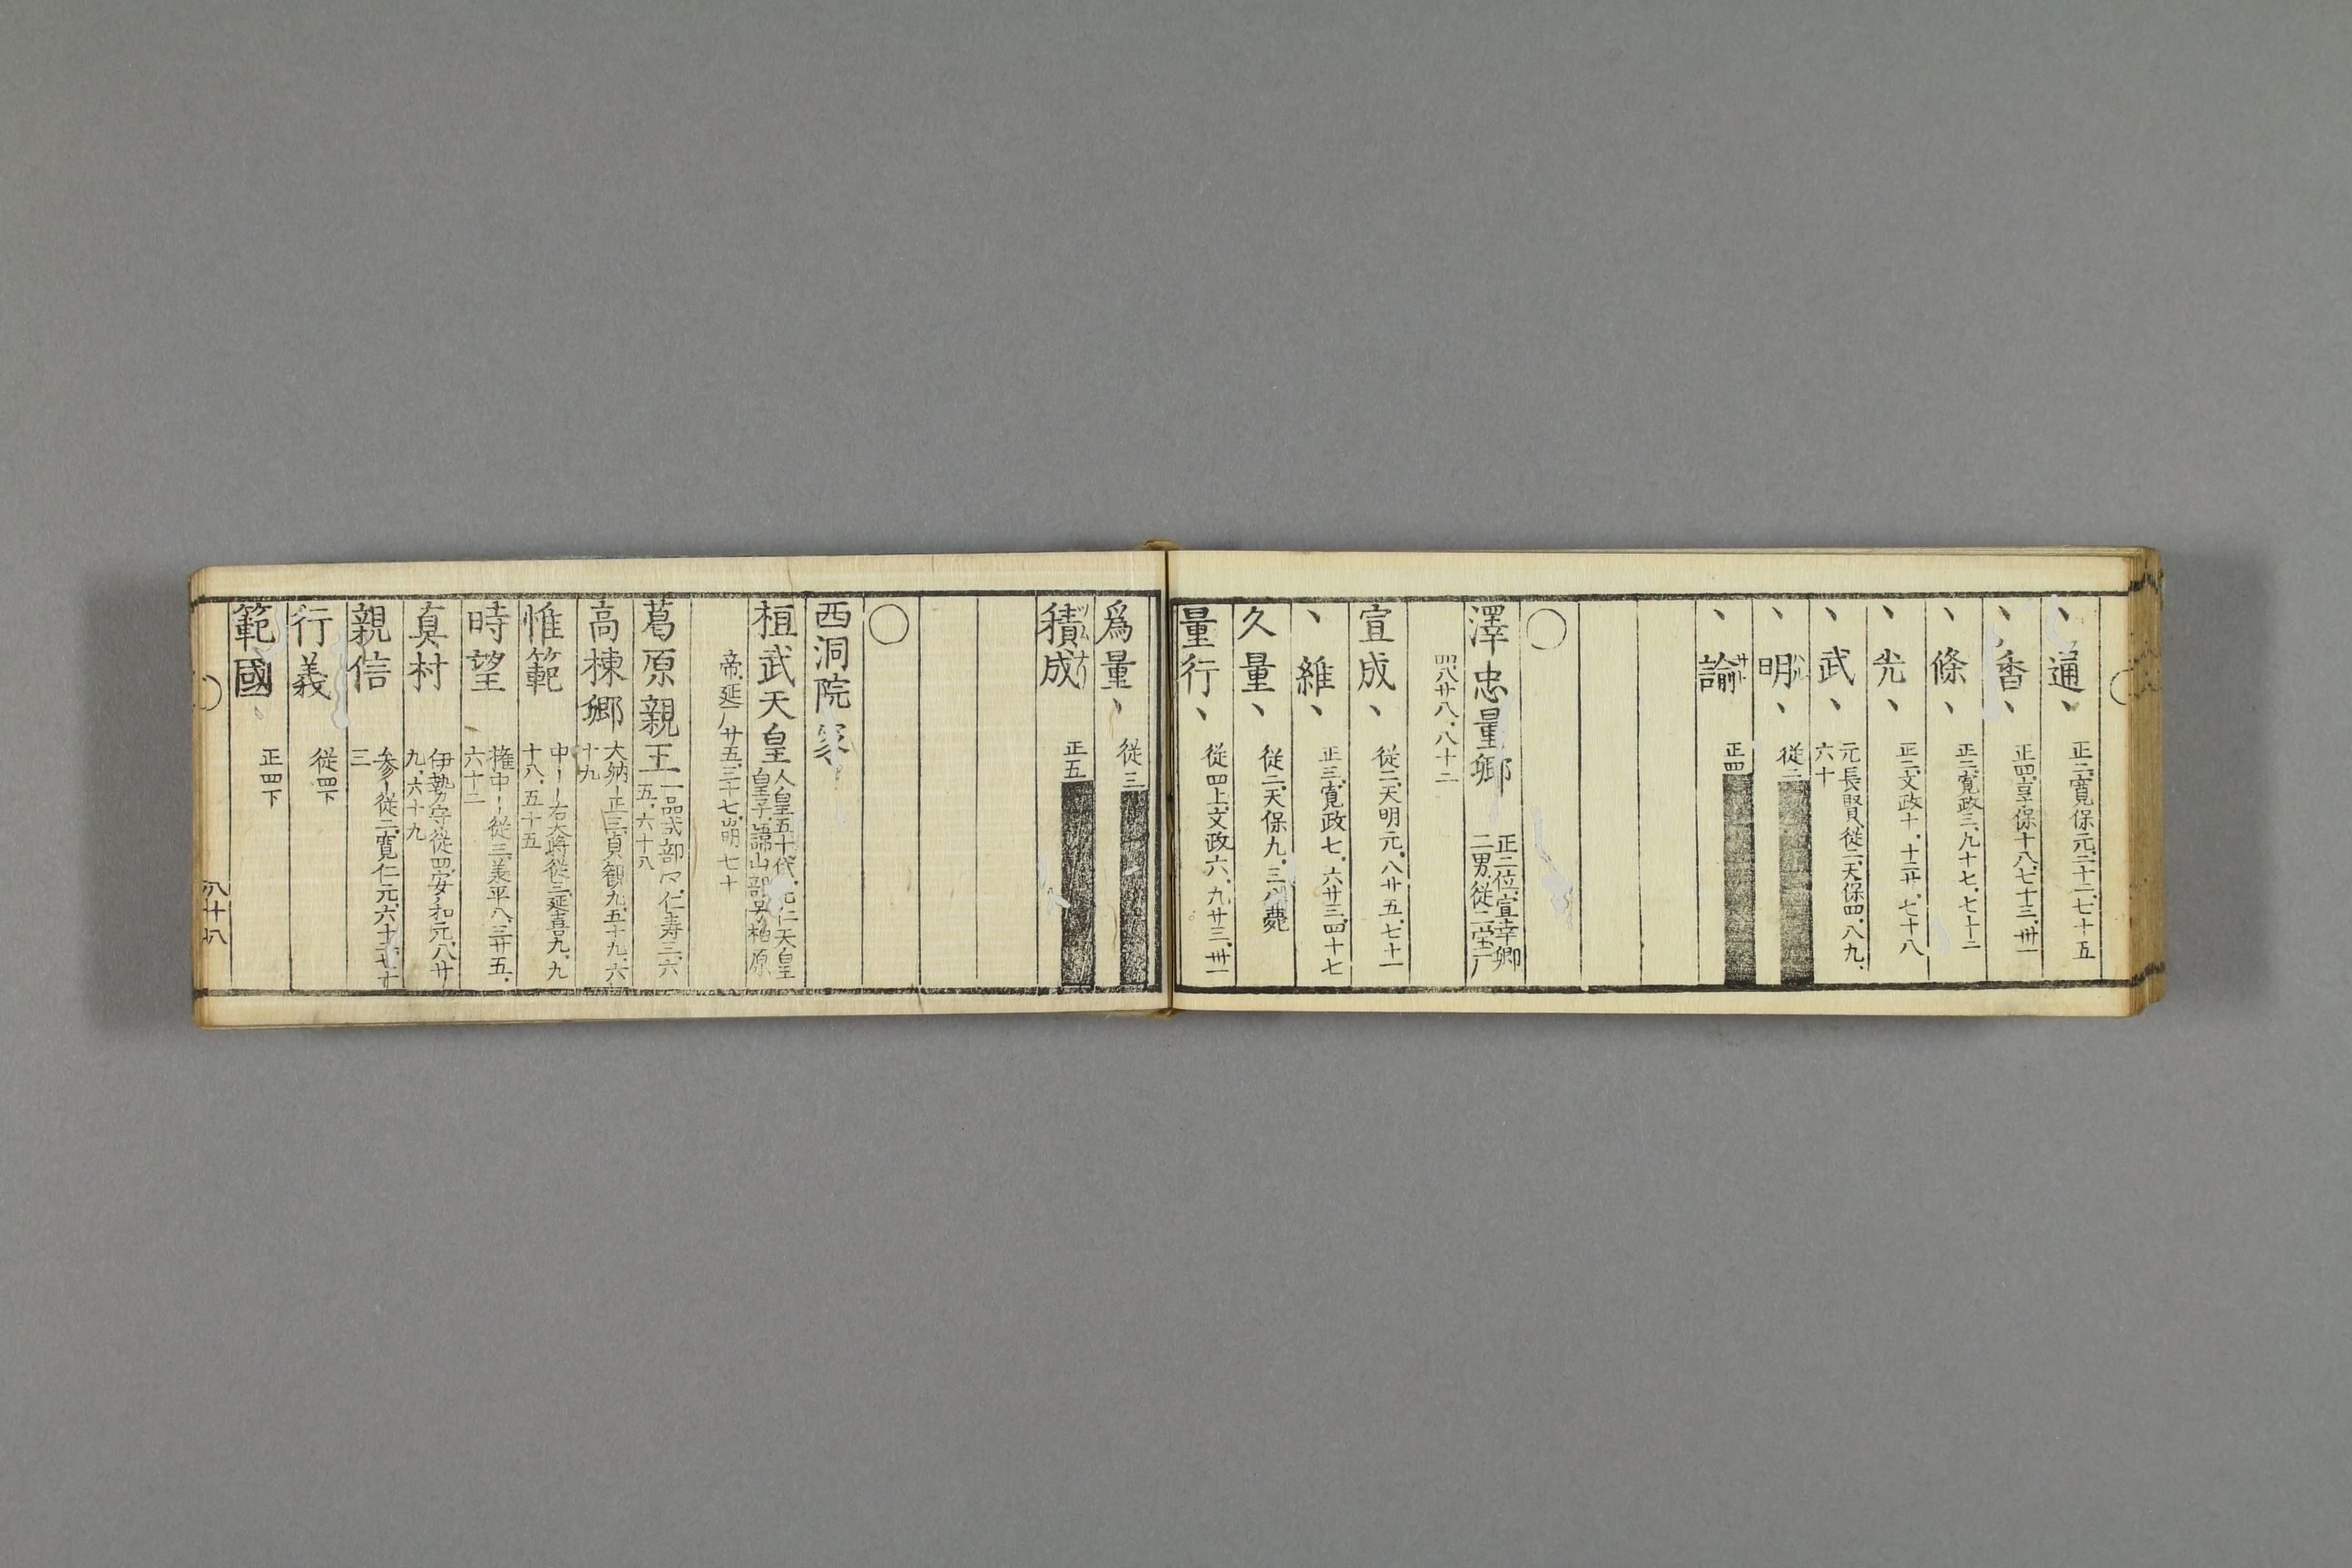 、通、 正二、寛保元、二十二、七十五
、香、 正四、享保十八、七十三、卌一
、條、 正二、寛政三、九十七、七十二
、光、 正二、文政十、十二廿、七十八
、武、 元長賢、従二、天保四、八九、
六十
、明、 従二
、諭 正四
〇
澤忠量卿 正二位宣幸卿
二男、従二、宝厂
四八廿八、八十二
宣成、 従二、天明元、八廿五、七十一
、維、 正三、寛政七、六廿三、四十七
久量、 従二、天保九、三八薨
量行、 従四上、文政六、九廿三、卅一
爲量、 従三
積成 正五
〇
西洞院家
桓武天皇 人皇五十代、光仁天皇
皇子、諱山部、号柏原
帝、延厂廿五、三十七崩、明七十
葛原親王 一品式部卿、仁寿三、六
五、六十八
高棟卿 大納ー正三、貞観九、五十九、六
十九
惟範 中ー右大将従三、延喜九、九
十八、五十五
時望 権中ー従三、美平八、三廿五、
六十二
真材 伊勢守従四、安和元、八廿
九、六十九
親信 参ー従二、寛仁元、六十二、七十
三
行義 従四下
範國 正四下
八十八